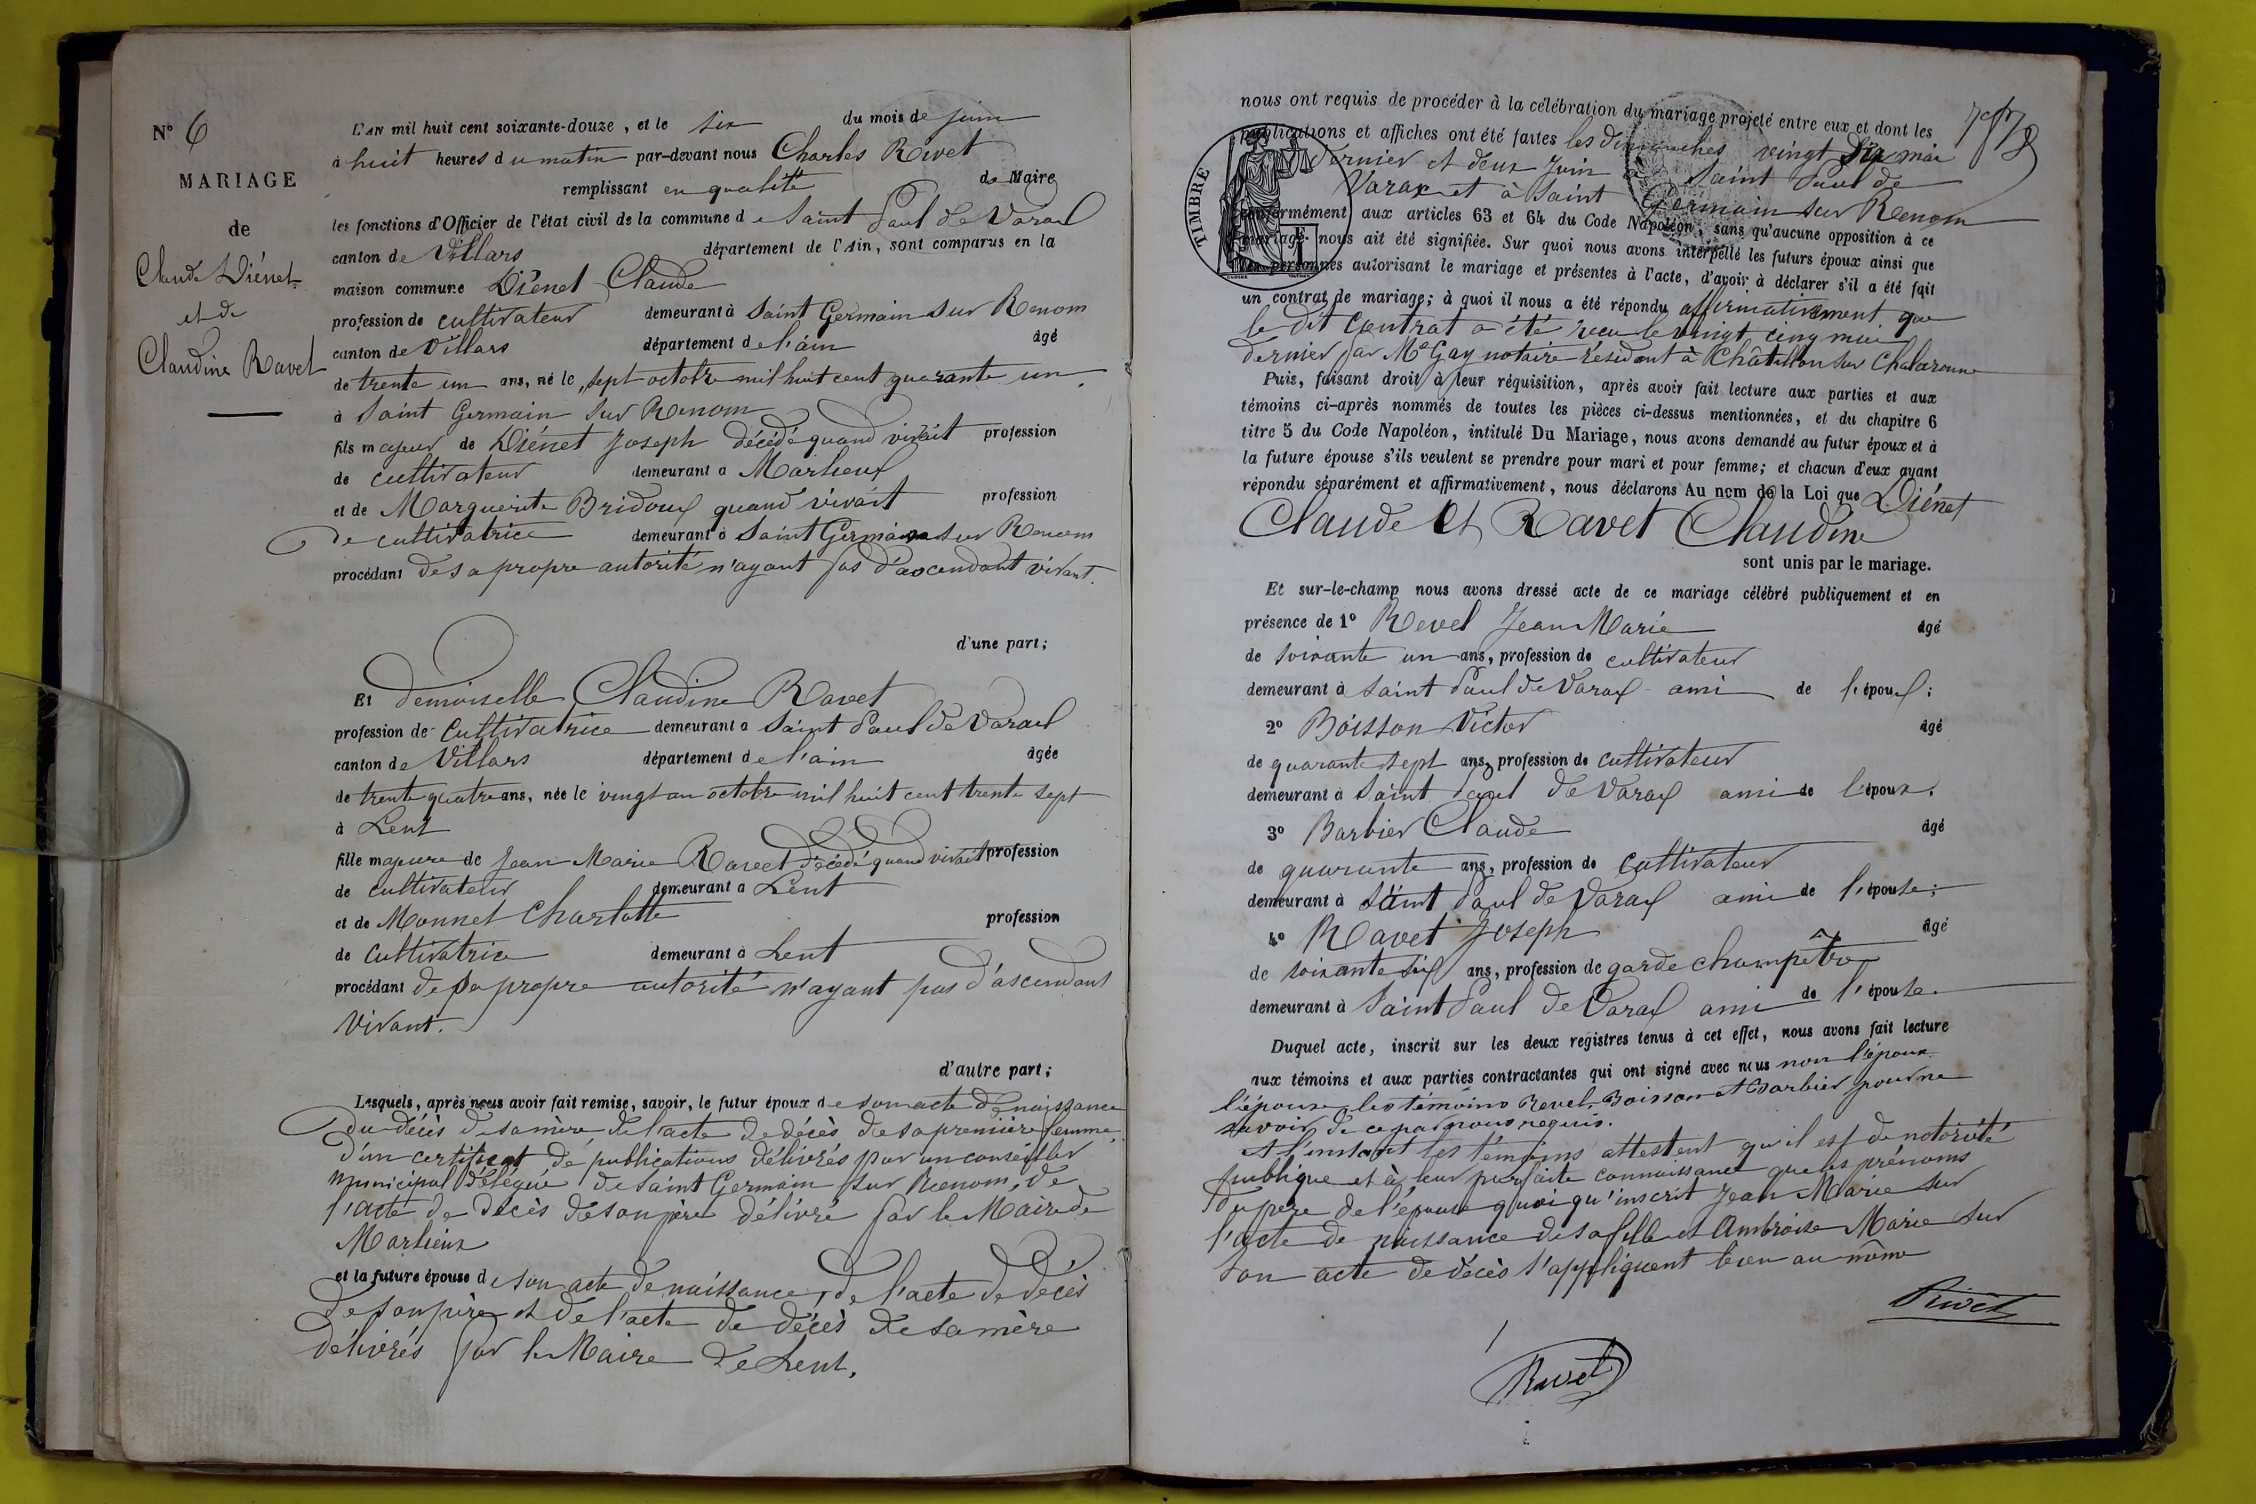 N° 6
MARIAGE
de
Claude Diénet
et de
Claudine Ravet
L'AN mil huit cent soixante-douze, et le six du mois de juin
à huit heures du matin par-devant nous Charles Rivet
remplissant en qualité de Maire
les fonctions d'Officier de l'état civil de la commune de Saint Paul de Varax
canton de Villars département de l'Ain, sont comparus en la
maison commune Diénet Claude
profession de cultivateur demeurant à Saint Germain sur Renom
canton de Villars département de l'ain âgé
de trente un ans, né le sept octobre mil huit cent quarante un
à Saint Germain sur Renom
fils majeur de Diénet Joseph décédé quand vivait profession
de cultivateur demeurant a Marlieux
et de Marguerite Bridoux quand vivait profession
de cultivatrice demeurant à Saint Germain sur Renom
procédant de sa propre autorité n'ayant pas d'ascendant vivant.
d'une part;
Et demoiselle Claudine Ravet
profession de cultivatrice demeurant a Saint Paul de Varax
canton de Villars département de l'ain âgée
de trente quatre ans, née le vingt un octobre mil huit cent trente sept
à Lent
fille majeure de Jean Marie Ravet décédé quand vivait profession
de cultivateur demeurant a Lent
et de Monnet Charlotte profession
de cultivatrice demeurant à Lent
procédant de sa propre autorité n'ayant pas d'ascendant
vivant.
d'autre part;
Lesquels, après nous avoir fait remise, savoir, le futur époux de son acte de naissance
du décès de sa mère de l'acte de décès de sa première femme,
d'un certificat de publications délivrés par un conseiller
municipal délégué de Saint Germain sur Renom, de
l'acte de décès de son père délivré par le Maire de
Marlieux
et la future épouse de son acte de naissance, de l'acte de décès
de son père et de l'acte de décès de sa mère
délivrés par le Maire de Lent.
nous ont requis de procéder à la célébration du mariage projeté entre eux et dont les
publications et affiches ont été faites les dimanches vingt six mai
dernier et deux Juin à Saint Paul de
Varax et à Saint Germain sur Renom
conformément aux articles 63 et 64 du Code Napoléon, sans qu'aucune opposition à ce
mariage nous ait été signifiée. Sur quoi nous avons interpellé les futurs époux ainsi que
les personnes autorisant le mariage et présentes à l'acte, d'avoir à déclarer s'il a été fait
un contrat de mariage; à quoi il nous a été répondu affirmativement que
le dit Contrat a été reçu le vingt cinq mai
dernier par Me Gay notaire résidant à Châtillon sur Chalaronne
Puis, faisant droit à leur réquisition, après avoir fait lecture aux parties et aux
témoins ci-après nommés de toutes les pièces ci-dessus mentionnées, et du chapitre 6
titre 5 du Code Napoléon, intitulé Du Mariage, nous avons demandé au futur époux et à
la future épouse s'ils veulent se prendre pour mari et pour femme; et chacun d'eux ayant
répondu séparément et affirmativement, nous déclarons Au nom de la Loi que Diénet
Claude et Ravet Claudine
sont unis par le mariage.
Et sur-le-champ nous avons dressé acte de ce mariage célébré publiquement et en
présence de 1° Revel Jean Marie âgé
de soixante un ans, profession de cultivateur
demeurant à Saint Paul de Varax ami de l'époux;
2° Boisson Victor âgé
de quarante sept ans, profession de cultivateur
demeurant à Saint Paul de Varax ami de l'époux.
3° Barbier Claude âgé
de quarante ans, profession de cultivateur
demeurant à Saint Paul de Varax ami de l'épouse;
4° Ravet Joseph âgé
de soixante six ans, profession de garde champêtre
demeurant à Saint Paul de Varax ami de l'épouse.
Duquel acte, inscrit sur les deux registres tenus à cet effet, nous avons fait lecture
aux témoins et aux parties contractantes qui ont signé avec nous non l'époux
l'épouse les témoins Revel, Boisson et Barbier pour ne
savoir de ce par nous requis.
A l'instant les témoins attestent qu'il est de notoriété
publique et à leur parfaite connaissance que les prénoms
du père de l'épouse quoi qu'inscrit Jean Marie sur
l'acte de naissance de sa fille et Ambroise Marie sur
son acte de décès s'appliquent bien au même
Rivet
Ravet
TIMBRE